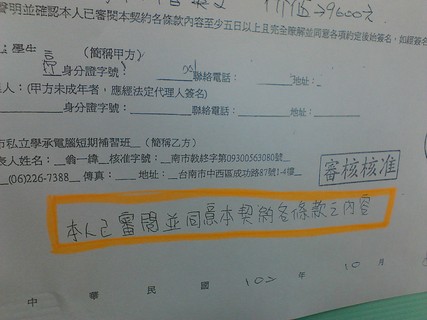 價->9600元
聲明並確認本人已審閱本契約各條款內容至少五日以上且完全瞭解並同意各項約定後始簽名，如經簽
學生 (簡稱甲方)
身分證字號： 聯絡電話： 地址：
人：(甲方未成年者，應經法定代理人簽名)
身分證字號： 聯絡電話： 地址：
市私立學承電腦短期補習班 (簡稱乙方)
表人姓名：翁一緯 核准字號：南市教終字第09300563080號
(06)226-7388 傳真： 地址：台南市中西區成功路87號1-4樓
審核核准
本人已審閱並同意本契約各條款之內容
中 華 民 國 102 年 10 月